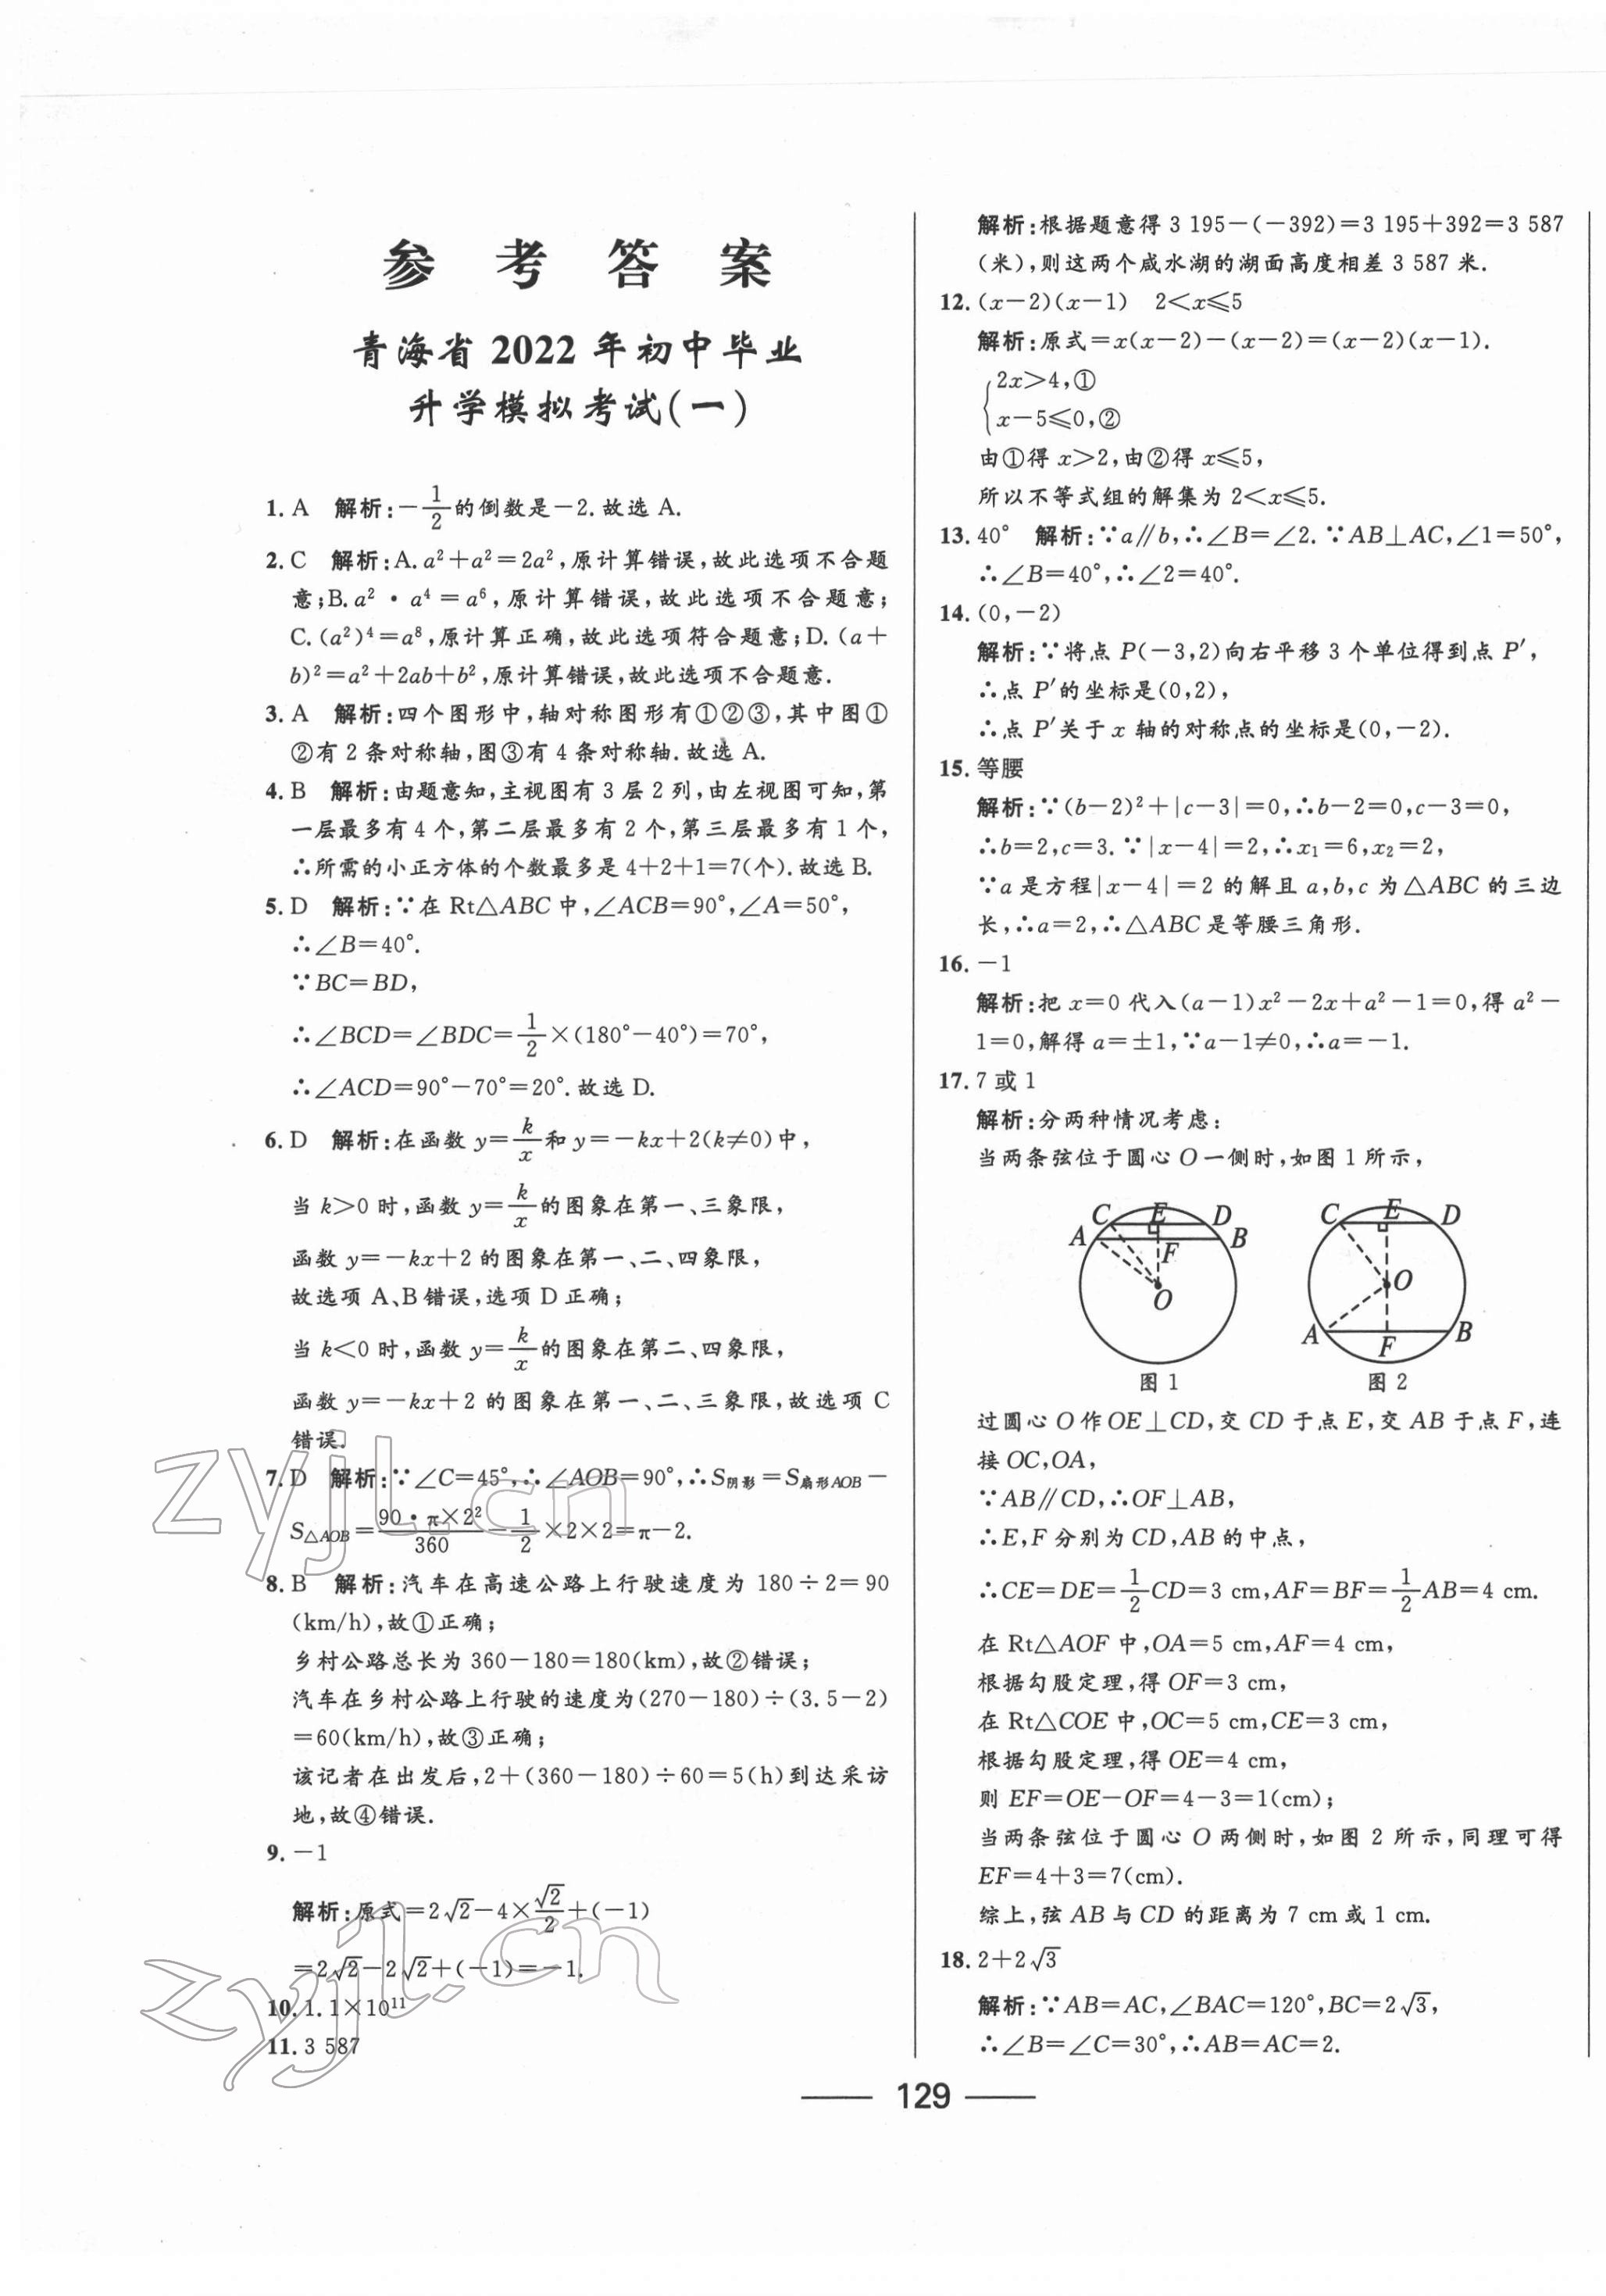 参考答案
青海省 2022 年初中毕业
升学模拟考试(一)
1. A 解析:－1/2的倒数是－2.故选 A.
2. C 解析:A. a²＋a²＝2a²,原计算错误,故此选项不合题
意;B. a²・a⁴＝a⁶,原计算错误,故此选项不合题意;
C. (a²)⁴＝a⁸,原计算正确,故此选项符合题意;D. (a＋
b)²＝a²＋2ab＋b²,原计算错误,故此选项不合题意.
3. A 解析:四个图形中,轴对称图形有①②③,其中图①
②有 2 条对称轴,图③有 4 条对称轴.故选 A.
4. B 解析:由题意知,主视图有 3 层 2 列,由左视图可知,第
一层最多有 4 个,第二层最多有 2 个,第三层最多有 1 个,
∴所需的小正方体的个数最多是 4＋2＋1＝7(个).故选 B.
5. D 解析:∵在 Rt△ABC 中,∠ACB＝90°,∠A＝50°,
∴∠B＝40°.
∵BC＝BD,
∴∠BCD＝∠BDC＝1/2×(180°－40°)＝70°,
∴∠ACD＝90°－70°＝20°.故选 D.
6. D 解析:在函数 y＝k/x和 y＝－kx＋2(k≠0)中,
当 k＞0 时,函数 y＝k/x的图象在第一、三象限,
函数 y＝－kx＋2 的图象在第一、二、四象限,
故选项 A、B 错误,选项 D 正确;
当 k＜0 时,函数 y＝k/x的图象在第二、四象限,
函数 y＝－kx＋2 的图象在第一、二、三象限,故选项 C
错误.
7. D 解析:∵∠C＝45°,∴∠AOB＝90°,∴S阴影＝S扇形AOB－
S△AOB＝90・π×2²/360－1/2×2×2＝π－2.
8. B 解析:汽车在高速公路上行驶速度为 180÷2＝90
(km/h),故①正确;
乡村公路总长为 360－180＝180(km),故②错误;
汽车在乡村公路上行驶的速度为(270－180)÷(3.5－2)
＝60(km/h),故③正确;
该记者在出发后,2＋(360－180)÷60＝5(h)到达采访
地,故④错误.
9. －1
解析:原式＝2√2－4×√2/2＋(－1)
＝2√2－2√2＋(－1)＝－1.
10. 1.1×10¹¹
11. 3 587
解析:根据题意得 3 195－(－392)＝3 195＋392＝3 587
(米),则这两个咸水湖的湖面高度相差 3 587 米.
12. (x－2)(x－1) 2＜x≤5
解析:原式＝x(x－2)－(x－2)＝(x－2)(x－1).
2x＞4,①
x－5≤0,②
由①得 x＞2,由②得 x≤5,
所以不等式组的解集为 2＜x≤5.
13. 40° 解析:∵a∥b,∴∠B＝∠2. ∵AB⊥AC,∠1＝50°,
∴∠B＝40°,∴∠2＝40°.
14. (0,－2)
解析:∵将点 P(－3,2)向右平移 3 个单位得到点 P′,
∴点 P′的坐标是(0,2),
∴点 P′关于 x 轴的对称点的坐标是(0,－2).
15. 等腰
解析:∵(b－2)²＋|c－3|＝0,∴b－2＝0,c－3＝0,
∴b＝2,c＝3. ∵|x－4|＝2,∴x₁＝6,x₂＝2,
∵a 是方程|x－4|＝2 的解且 a,b,c 为△ABC 的三边
长,∴a＝2,∴△ABC 是等腰三角形.
16. －1
解析:把 x＝0 代入(a－1)x²－2x＋a²－1＝0,得 a²－
1＝0,解得 a＝±1,∵a－1≠0,∴a＝－1.
17. 7 或 1
解析:分两种情况考虑:
当两条弦位于圆心 O 一侧时,如图 1 所示,
C E D
A F B
O
图 1
C E D
O
A F B
图 2
过圆心 O 作 OE⊥CD,交 CD 于点 E,交 AB 于点 F,连
接 OC,OA,
∵AB∥CD,∴OF⊥AB,
∴E,F 分别为 CD,AB 的中点,
∴CE＝DE＝1/2CD＝3 cm,AF＝BF＝1/2AB＝4 cm.
在 Rt△AOF 中,OA＝5 cm,AF＝4 cm,
根据勾股定理,得 OF＝3 cm,
在 Rt△COE 中,OC＝5 cm,CE＝3 cm,
根据勾股定理,得 OE＝4 cm,
则 EF＝OE－OF＝4－3＝1(cm);
当两条弦位于圆心 O 两侧时,如图 2 所示,同理可得
EF＝4＋3＝7(cm).
综上,弦 AB 与 CD 的距离为 7 cm 或 1 cm.
18. 2＋2√3
解析:∵AB＝AC,∠BAC＝120°,BC＝2√3,
∴∠B＝∠C＝30°,∴AB＝AC＝2.
129
zyjl.cn
zyjl.cn